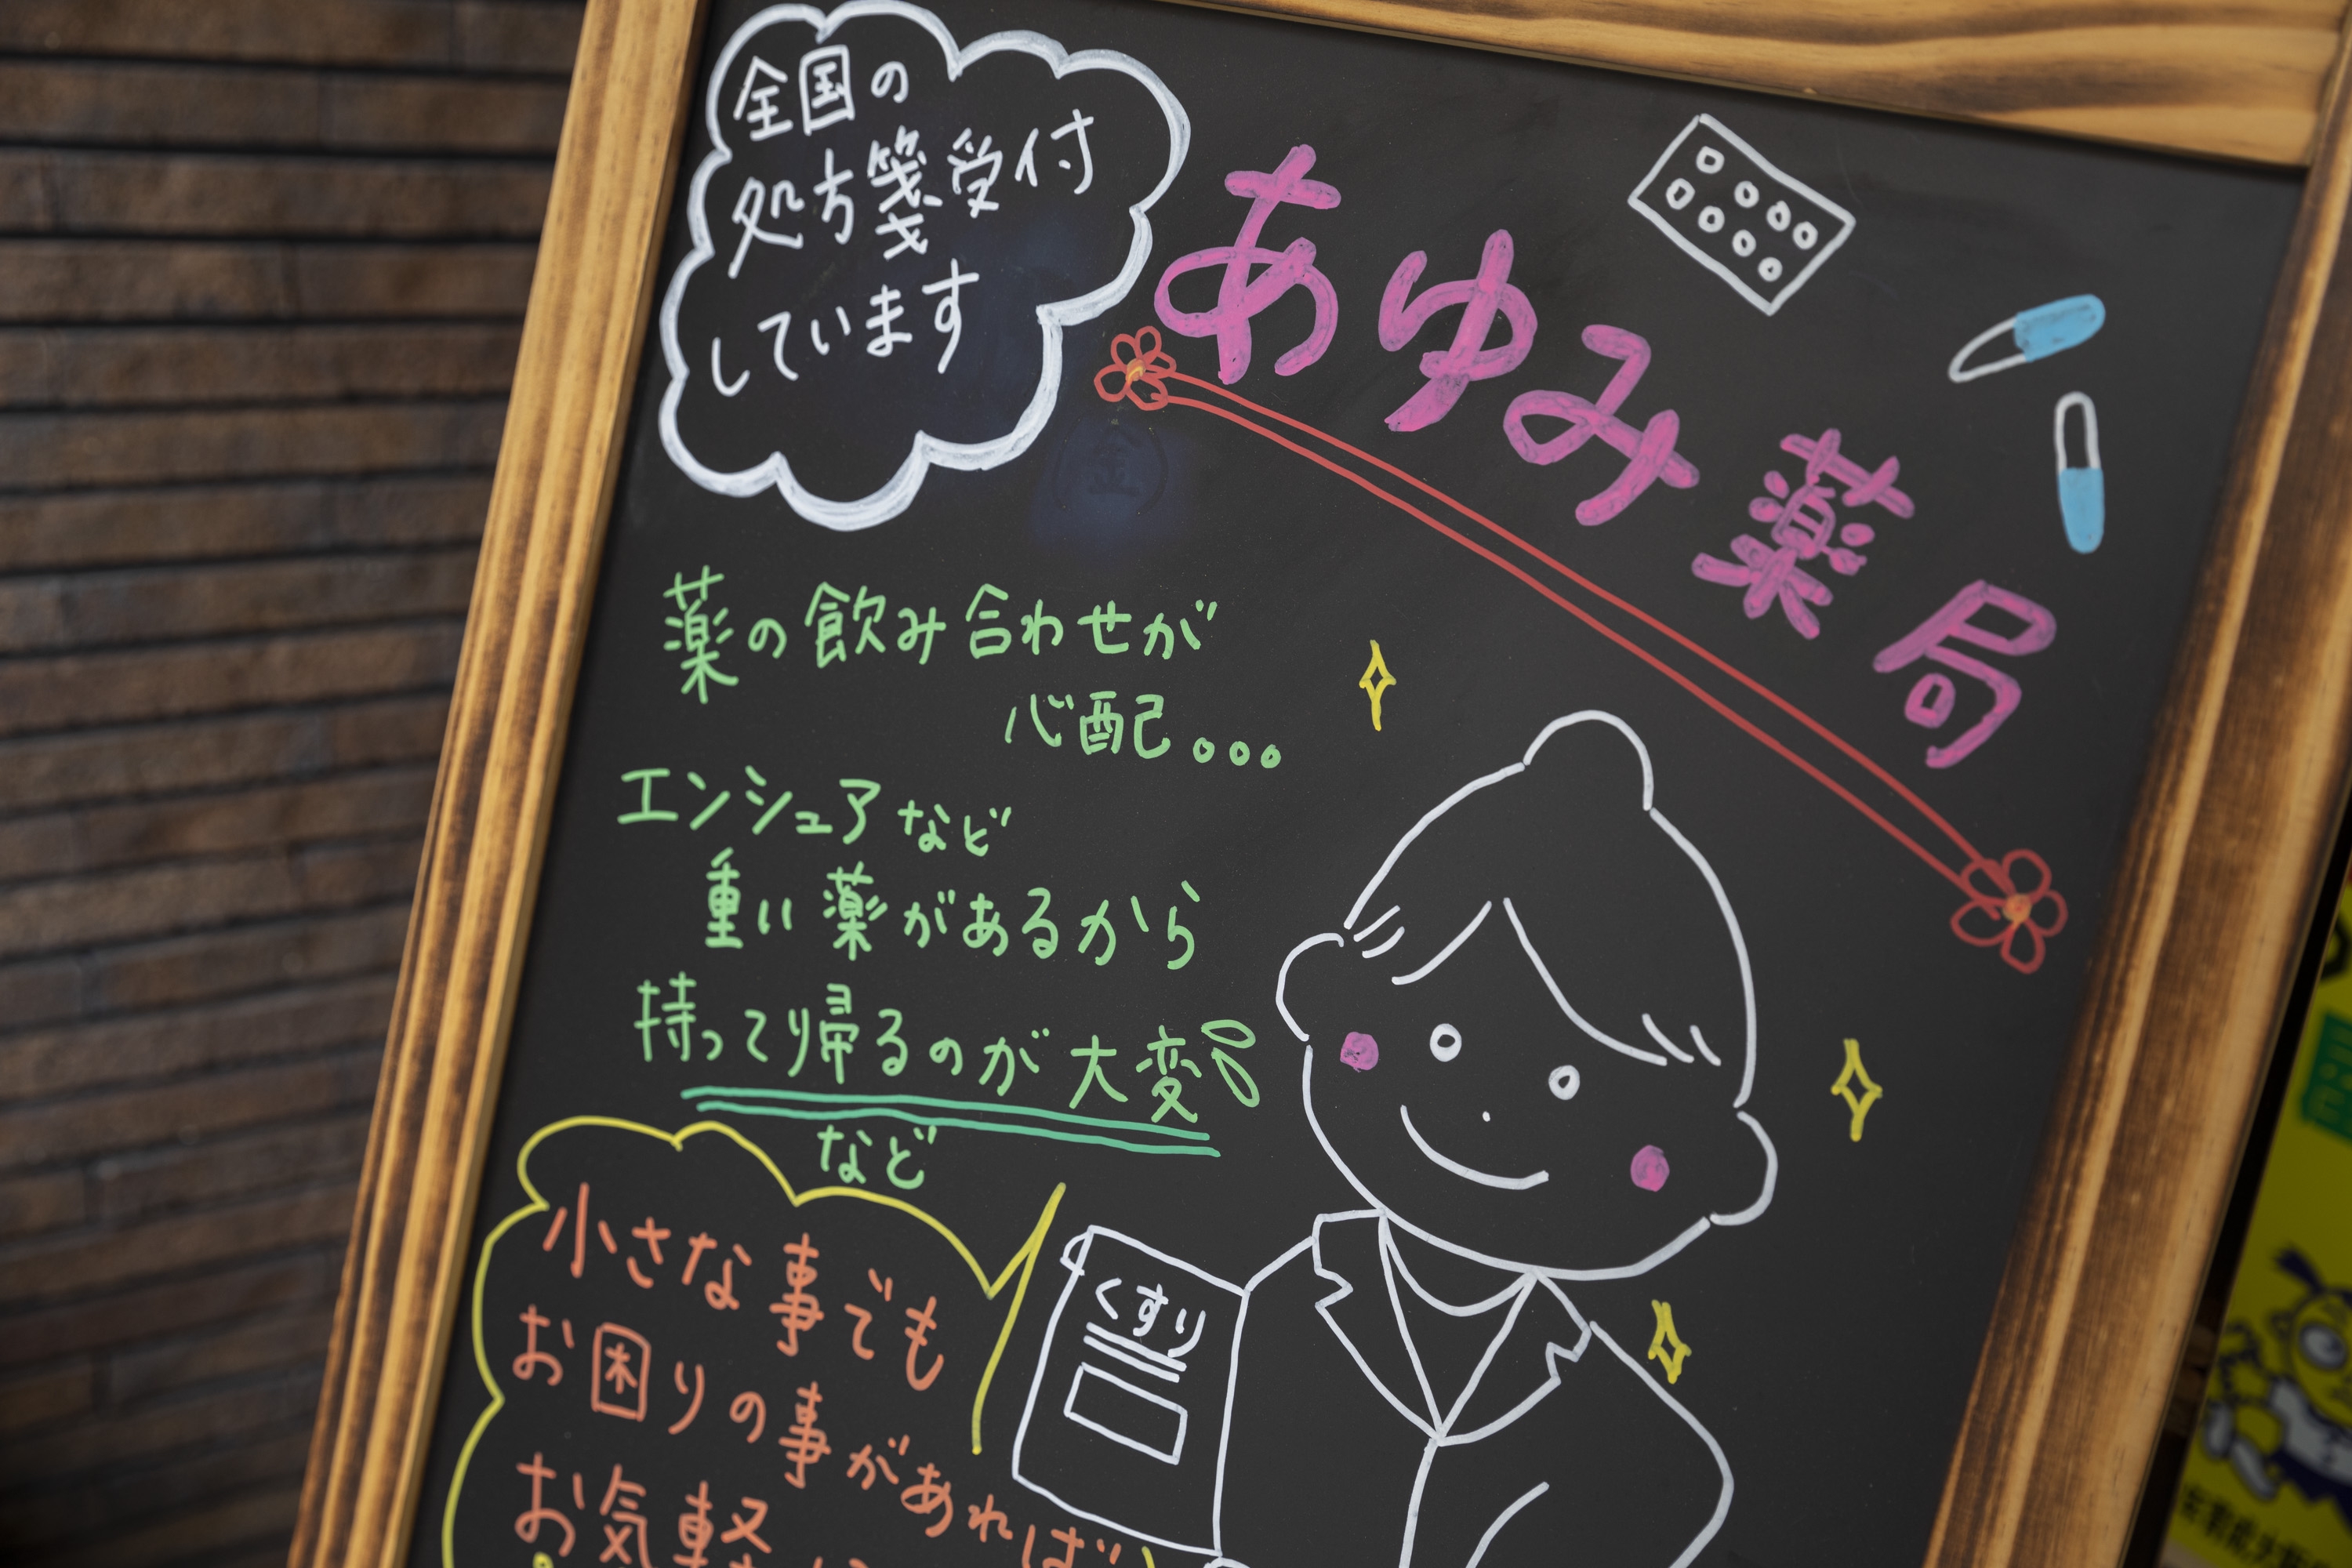 全国の
処方箋受付
しています
あゆみ薬局
薬の飲み合わせが
心配。。。
エンシュアなど
重い薬があるから
持って帰るのが大変
など
小さな事でも
お困りの事があれば
お気軽
くすり